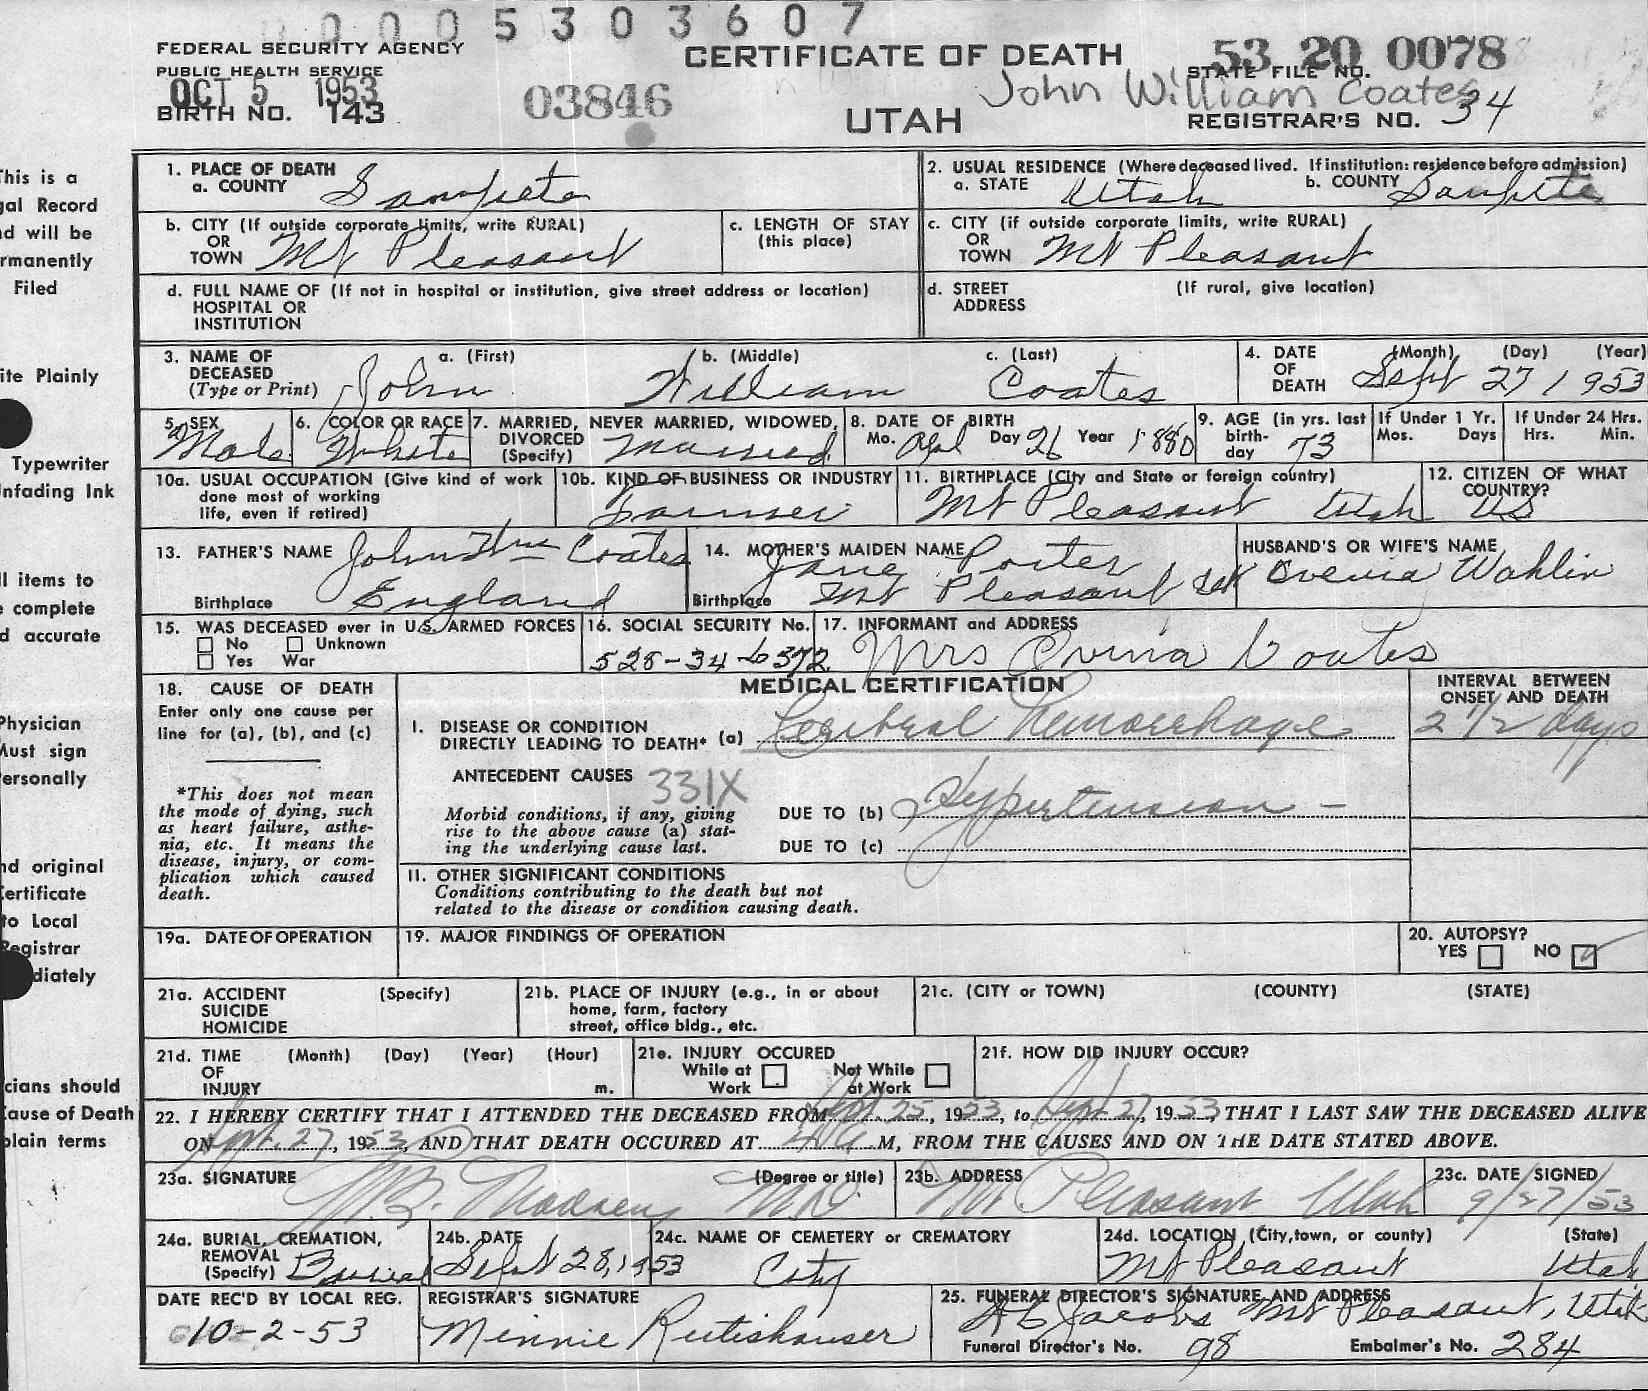 0 0 0 0 5 3 0 3 6 0 7
FEDERAL SECURITY AGENCY
PUBLIC HEALTH SERVICE
OCT 5 1953
BIRTH NO. 143
03846
CERTIFICATE OF DEATH
UTAH
53 20 0078
STATE FILE NO.
John William Coates
REGISTRAR'S NO. 34
This is a
gal Record
nd will be
rmanently
Filed
ite Plainly
Typewriter
nfading Ink
ll items to
e complete
d accurate
Physician
Must sign
Personally
nd original
Certificate
to Local
Registrar
diately
cians should
Cause of Death
plain terms
1. PLACE OF DEATH
a. COUNTY Sanpete
2. USUAL RESIDENCE (Where deceased lived. If institution: residence before admission)
a. STATE Utah b. COUNTY Sanpete
b. CITY (If outside corporate limits, write RURAL)
OR
TOWN Mt Pleasant
c. LENGTH OF STAY
(this place)
c. CITY (if outside corporate limits, write RURAL)
OR
TOWN Mt Pleasant
d. FULL NAME OF (If not in hospital or institution, give street address or location)
HOSPITAL OR
INSTITUTION
d. STREET (If rural, give location)
ADDRESS
3. NAME OF DECEASED
(Type or Print)
a. (First) John
b. (Middle) William
c. (Last) Coates
4. DATE OF DEATH (Month) (Day) (Year)
Sept 27 1953
5. SEX
Male
6. COLOR OR RACE
White
7. MARRIED, NEVER MARRIED, WIDOWED,
DIVORCED
(Specify) Married
8. DATE OF BIRTH
Mo. Apl Day 26 Year 1880
9. AGE (in yrs. last
birth-
day 73
If Under 1 Yr.
Mos. Days
If Under 24 Hrs.
Hrs. Min.
10a. USUAL OCCUPATION (Give kind of work
done most of working
life, even if retired)
10b. KIND OF BUSINESS OR INDUSTRY
Farmer
11. BIRTHPLACE (City and State or foreign country)
Mt Pleasant Utah
12. CITIZEN OF WHAT
COUNTRY?
US
13. FATHER'S NAME John Wm Coates
Birthplace England
14. MOTHER'S MAIDEN NAME Jane Porter
Birthplace Mt Pleasant Ut
HUSBAND'S OR WIFE'S NAME
Ovenia Wahlin
15. WAS DECEASED ever in U.S. ARMED FORCES
No Unknown
Yes War
16. SOCIAL SECURITY No.
528-34-6372
17. INFORMANT and ADDRESS
Mrs Ovina Coates
18. CAUSE OF DEATH
Enter only one cause per
line for (a), (b), and (c)
*This does not mean
the mode of dying, such
as heart failure, asthe-
nia, etc. It means the
disease, injury, or com-
plication which caused
death.
MEDICAL CERTIFICATION
INTERVAL BETWEEN
ONSET AND DEATH
I. DISEASE OR CONDITION
DIRECTLY LEADING TO DEATH* (a) Cerebral Hemorrhage
2 1/2 days
ANTECEDENT CAUSES 331X
Morbid conditions, if any, giving
rise to the above cause (a) stat-
ing the underlying cause last.
DUE TO (b) Hypertension -
DUE TO (c)
II. OTHER SIGNIFICANT CONDITIONS
Conditions contributing to the death but not
related to the disease or condition causing death.
19a. DATE OF OPERATION
19. MAJOR FINDINGS OF OPERATION
20. AUTOPSY?
YES NO ✓
21a. ACCIDENT (Specify)
SUICIDE
HOMICIDE
21b. PLACE OF INJURY (e.g., in or about
home, farm, factory
street, office bldg., etc.
21c. (CITY or TOWN) (COUNTY) (STATE)
21d. TIME (Month) (Day) (Year) (Hour)
OF
INJURY m.
21e. INJURY OCCURED
While at Work Not While at Work
21f. HOW DID INJURY OCCUR?
22. I HEREBY CERTIFY THAT I ATTENDED THE DECEASED FROM Sept. 25, 1953, to Sept. 27, 1953, THAT I LAST SAW THE DECEASED ALIVE
ON Sept. 27, 1953, AND THAT DEATH OCCURED AT M, FROM THE CAUSES AND ON THE DATE STATED ABOVE.
23a. SIGNATURE (Degree or title)
Madsen M.D.
23b. ADDRESS
Mt Pleasant Utah
23c. DATE SIGNED
9/27/53
24a. BURIAL, CREMATION,
REMOVAL
(Specify) Burial
24b. DATE
Sept 28, 1953
24c. NAME OF CEMETERY or CREMATORY
City
24d. LOCATION (City, town, or county) (State)
Mt Pleasant Utah
DATE REC'D BY LOCAL REG.
10-2-53
REGISTRAR'S SIGNATURE
Minnie Rutishauser
25. FUNERAL DIRECTOR'S SIGNATURE AND ADDRESS
Jacobs Mt Pleasant, Utah
Funeral Director's No. 98 Embalmer's No. 284